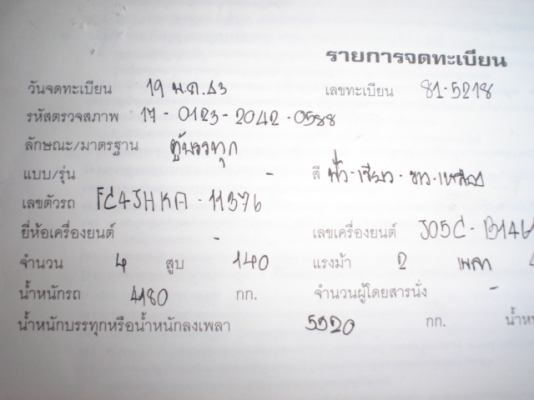 รายการจดทะเบียน
วันจดทะเบียน 19 พ.ค. 43 เลขทะเบียน 81-5218
รหัสตรวจสภาพ 17-0123-2042-0588
ลักษณะ/มาตรฐาน ตู้บรรทุก
แบบ/รุ่น - สี ฟ้า-เขียว-ขาว-เหลือง
เลขตัวรถ FC4JHKA-11376
ยี่ห้อเครื่องยนต์ - เลขเครื่องยนต์ J05C-B146
จำนวน 4 สูบ 140 แรงม้า 2 เพลา
น้ำหนักรถ 4180 กก. จำนวนผู้โดยสารนั่ง -
น้ำหนักบรรทุกหรือน้ำหนักลงเพลา 5920 กก.